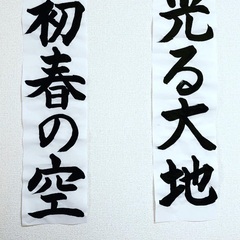 光る大地
初春の空